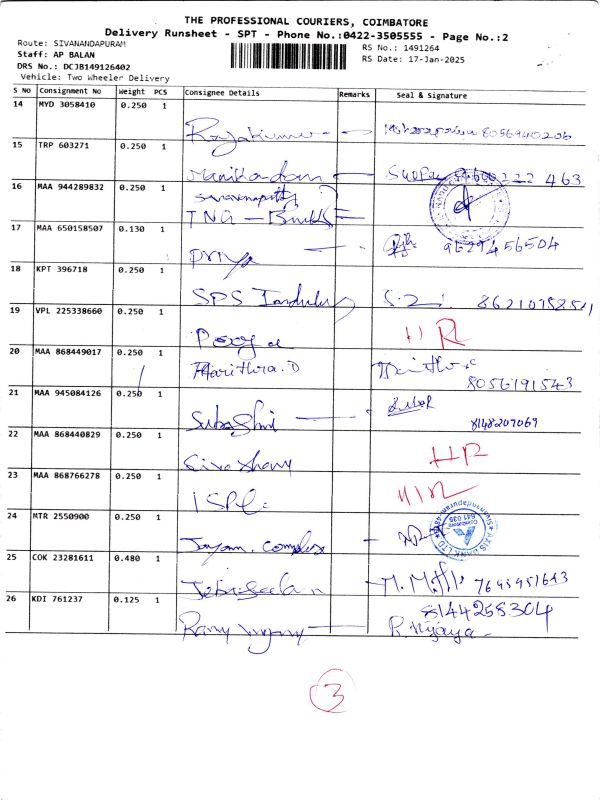 THE PROFESSIONAL COURIERS, COIMBATORE
Delivery Runsheet - SPT - Phone No.:0422-3505555 - Page No.:2
Route: SIVANANDAPURAM
RS No.: 1491264
Staff: AP BALAN
RS Date: 17-Jan-2025
DRS No.: DCJB149126402
Vehicle: Two Wheeler Delivery
S No Consignment No Weight PCS Consignee Details Remarks Seal & Signature
14 MYD 3058410 0.250 1
Rajakumar 8056940206
15 TRP 603271 0.250 1
Manikandan
16 MAA 944289832 0.250 1
Saravanapatty
TNG - Bank
17 MAA 650158507 0.130 1
Priya 9629456504
18 KPT 396718 0.250 1
SPS
19 VPL 225338660 0.250 1
Pooja
20 MAA 868449017 0.250 1
Harithra.D
8056191543
21 MAA 945084126 0.250 1
Subashri 8148207069
22 MAA 868440829 0.250 1
23 MAA 868766278 0.250 1
24 MTR 2550900 0.250 1
AXIS BANK LTD
Sivanandapuram
Coimbatore
641 035
25 COK 23281611 0.480 1
26 KDI 761237 0.125 1
8144258304
3